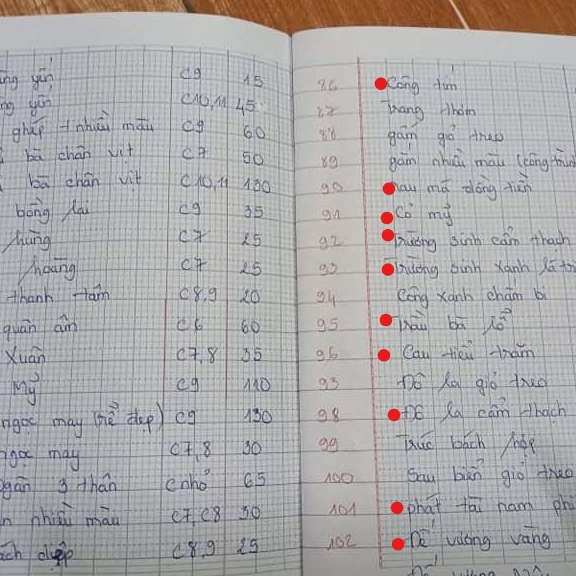 yến C9 15
yến C10,11 45
ghép nhiều màu C9 60
bã chân vịt C7 50
bã chân vịt C10,11 130
bồng lai C9 35
hùng C7 25
hoàng C7 25
thanh tâm C8,9 20
quân âm C6 60
Xuân C7,8 35
Mỹ C9 110
ngọc may (rễ đẹp) C9 130
ngọc may C7,8 30
ngân 3 thân C nhỏ 65
nhiều màu C7,C8 30
C8,9 25
86 Công tím
87 Trang thơm
88 gấm giỏ treo
89 gấm nhiều màu (công trình
90 may mã đồng tiền
91 Cỏ mỹ
92 Trường sinh cẩm thạch
93 Trường sinh xanh lá
94 Công xanh chấm bi
95 Trầu bà lỗ
96 Cau tiểu trâm
93 Đô la giỏ treo
98 Đô la cẩm thạch
99 Trúc bách hợp
100 Sau biển giỏ treo
101 phát tài nam phi
102 Đế vương vàng